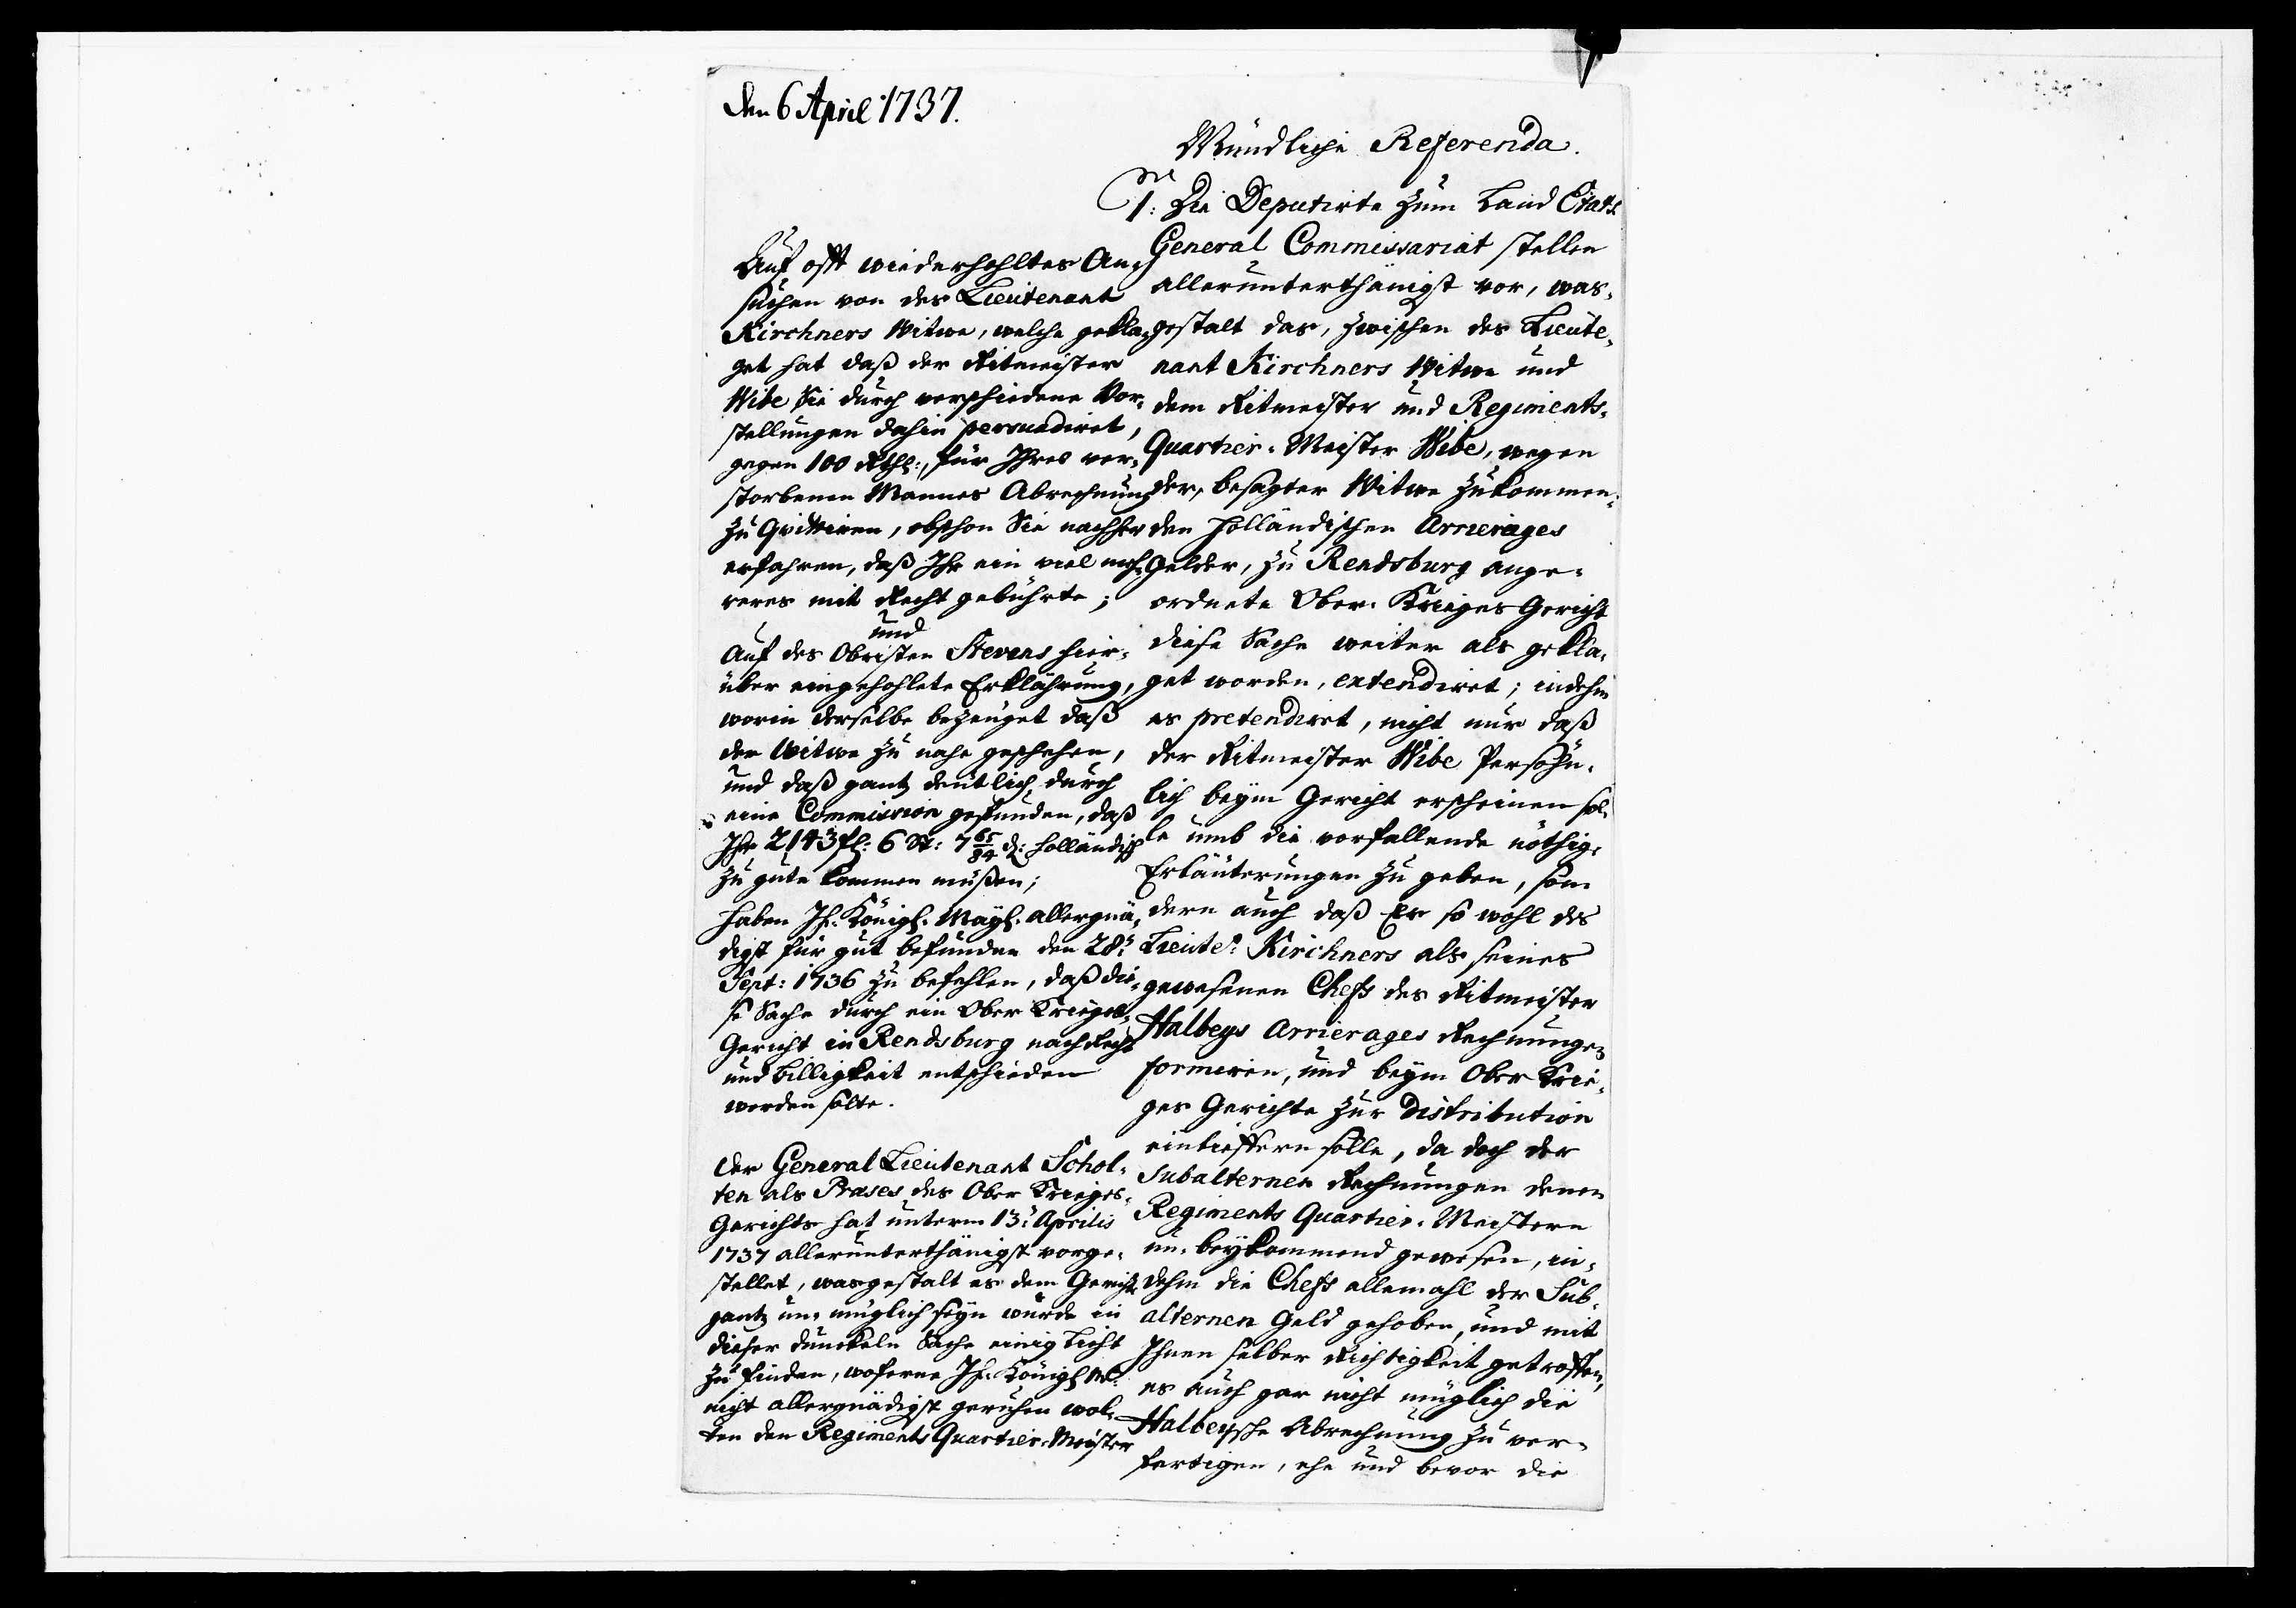 den 6 April 1737.
Mündliche Referenda.
1. Die Deputirte zum Land Etats
General Commissariat stellen
allerunterthänigst vor, was¬
gestalt das, zwischen des Lieute¬
nant Kirchners Witwe und
dem Ritmeister und Regiments¬
Quartier-Meister Wibe, wegen
der, besagter Witwe zukommen¬
den holländischen Arrierages
Gelder, zu Rendsburg ange¬
ordnete Ober-Krieges Gericht
diese Sache weiter als gekla¬
get worden, extendiret; indehm
es pretendiret, nicht nur daß
der Ritmeister Wibe Persohn¬
lich beym Gericht erscheinen sol¬
le umb die vorfallende nöthige
Erläuterungen zu geben, son¬
dern auch daß Er so wohl des
Lieute: Kirchners als seines
gewesenen Chefs des Ritmeister
Halbeys Arrierages Rechnungen
formiren, und beym Ober Krie¬
ges Gerichte zur Distribution
einlieffern solle, da doch der
Subalternen Rechnungen denen
Regiments Quartier-Meistern
un-beykommend gewesen, in¬
dehm die Chefs allemahl der Sub¬
alternen Geld gehoben, und mit
Ihnen selber Richtigkeit getroffen,
es auch gar nicht müglich die
Halbeysche Abrechnung zu ver¬
fertigen, ehe und bevor die
Auf offt wiederhohltes An¬
suchen von des Lieutenant
Kirchners Witwe, welche gekla¬
get hat daß der Ritmeister
Wibe Sie durch verschiedene Vor¬
stellungen dahin persuadiret,
gegen 100 Rthl:, für Ihres ver¬
storbenen Mannes Abrechnung
zu Qvittiren, obschon Sie nachher
erfahren, daß Ihr ein viel meh¬
reres mit Recht gebührte;
und
Auf des Obristen Stevens hier¬
über eingehohlete Erklährung,
worin derselbe bezeuget daß
der Witwe zu nahe geschehen,
und daß gantz deutlich, durch
eine Commission gefunden, daß
Ihr 2143 fl: 6 St: 7 65/84 d: holländisch
zu gute kommen müßen;
haben Ih. Königl. Mayt. allergnä¬
digst für gut befunden den 28:
Sept: 1736 zu befehlen, daß die¬
se Sache durch ein Ober Krieges¬
Gericht in Rendsburg nach Recht
und billigkeit entschieden
werden solte.
Der General Lieutenant Schol¬
ten als Præses des Ober Krieges¬
Gerichts hat unterm 13: Aprilis
1737 allerunterthänigst vorge¬
stellet, wasgestalt es dem Gericht
gantz un-müglich seyn würde in
dieser dunckeln Sache einig Licht
zu finden, woferne Ih. Königl M:
nicht allergnädigst geruhen wol¬
ten den Regiments Quartier-Meister